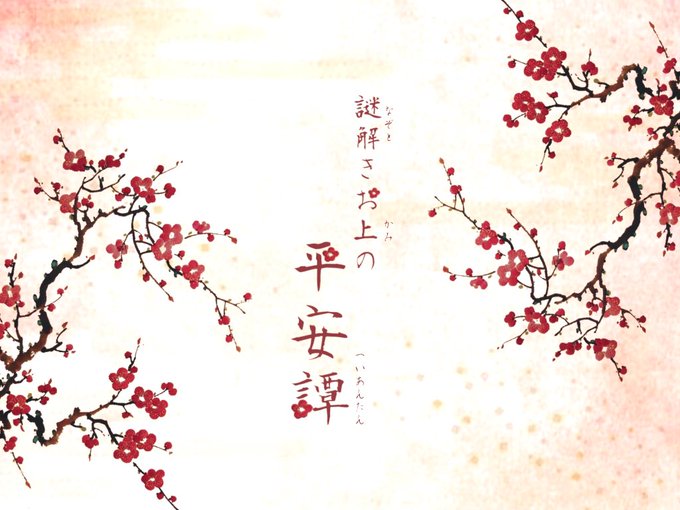 謎解きお上の
なぞと
かみ
平安譚
へいあんたん